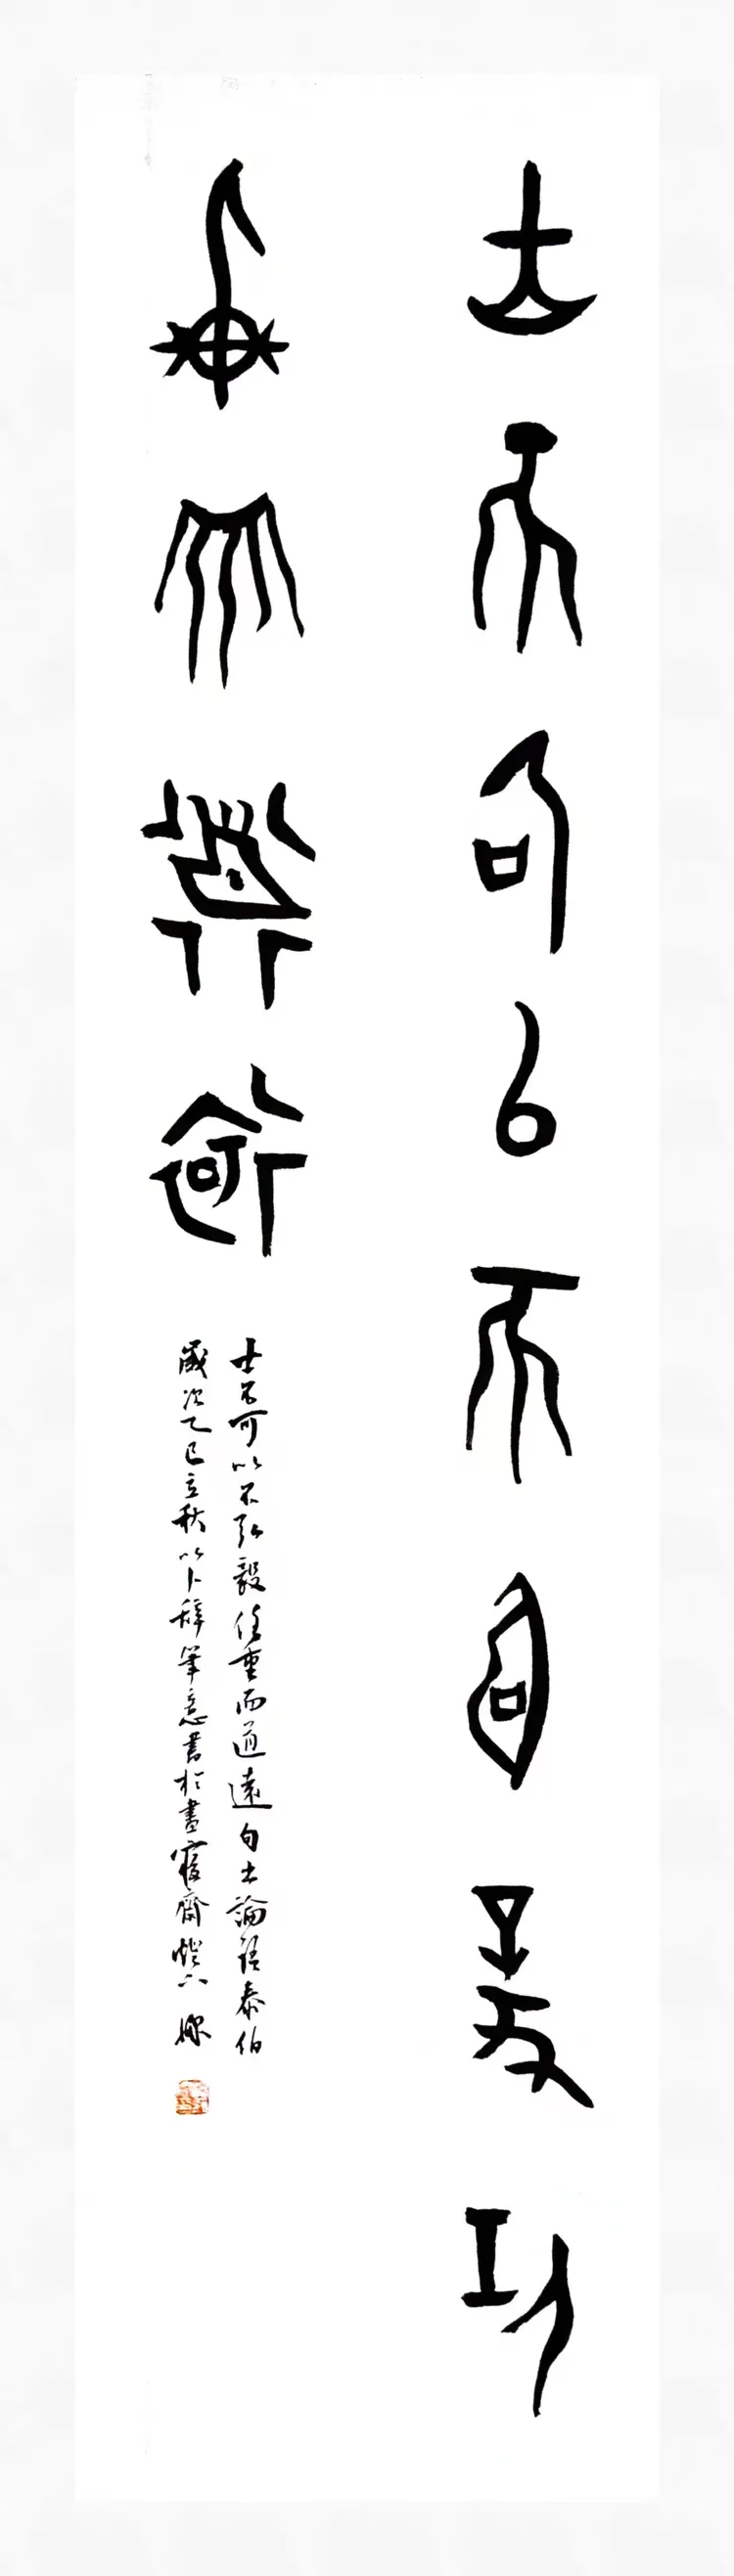 士不可以不弘毅任
重而道遠
士不可以不弘毅任重而道遠句出論語泰伯
歲次乙巳立秋以卜辞筆意書於畫寢齋燈下